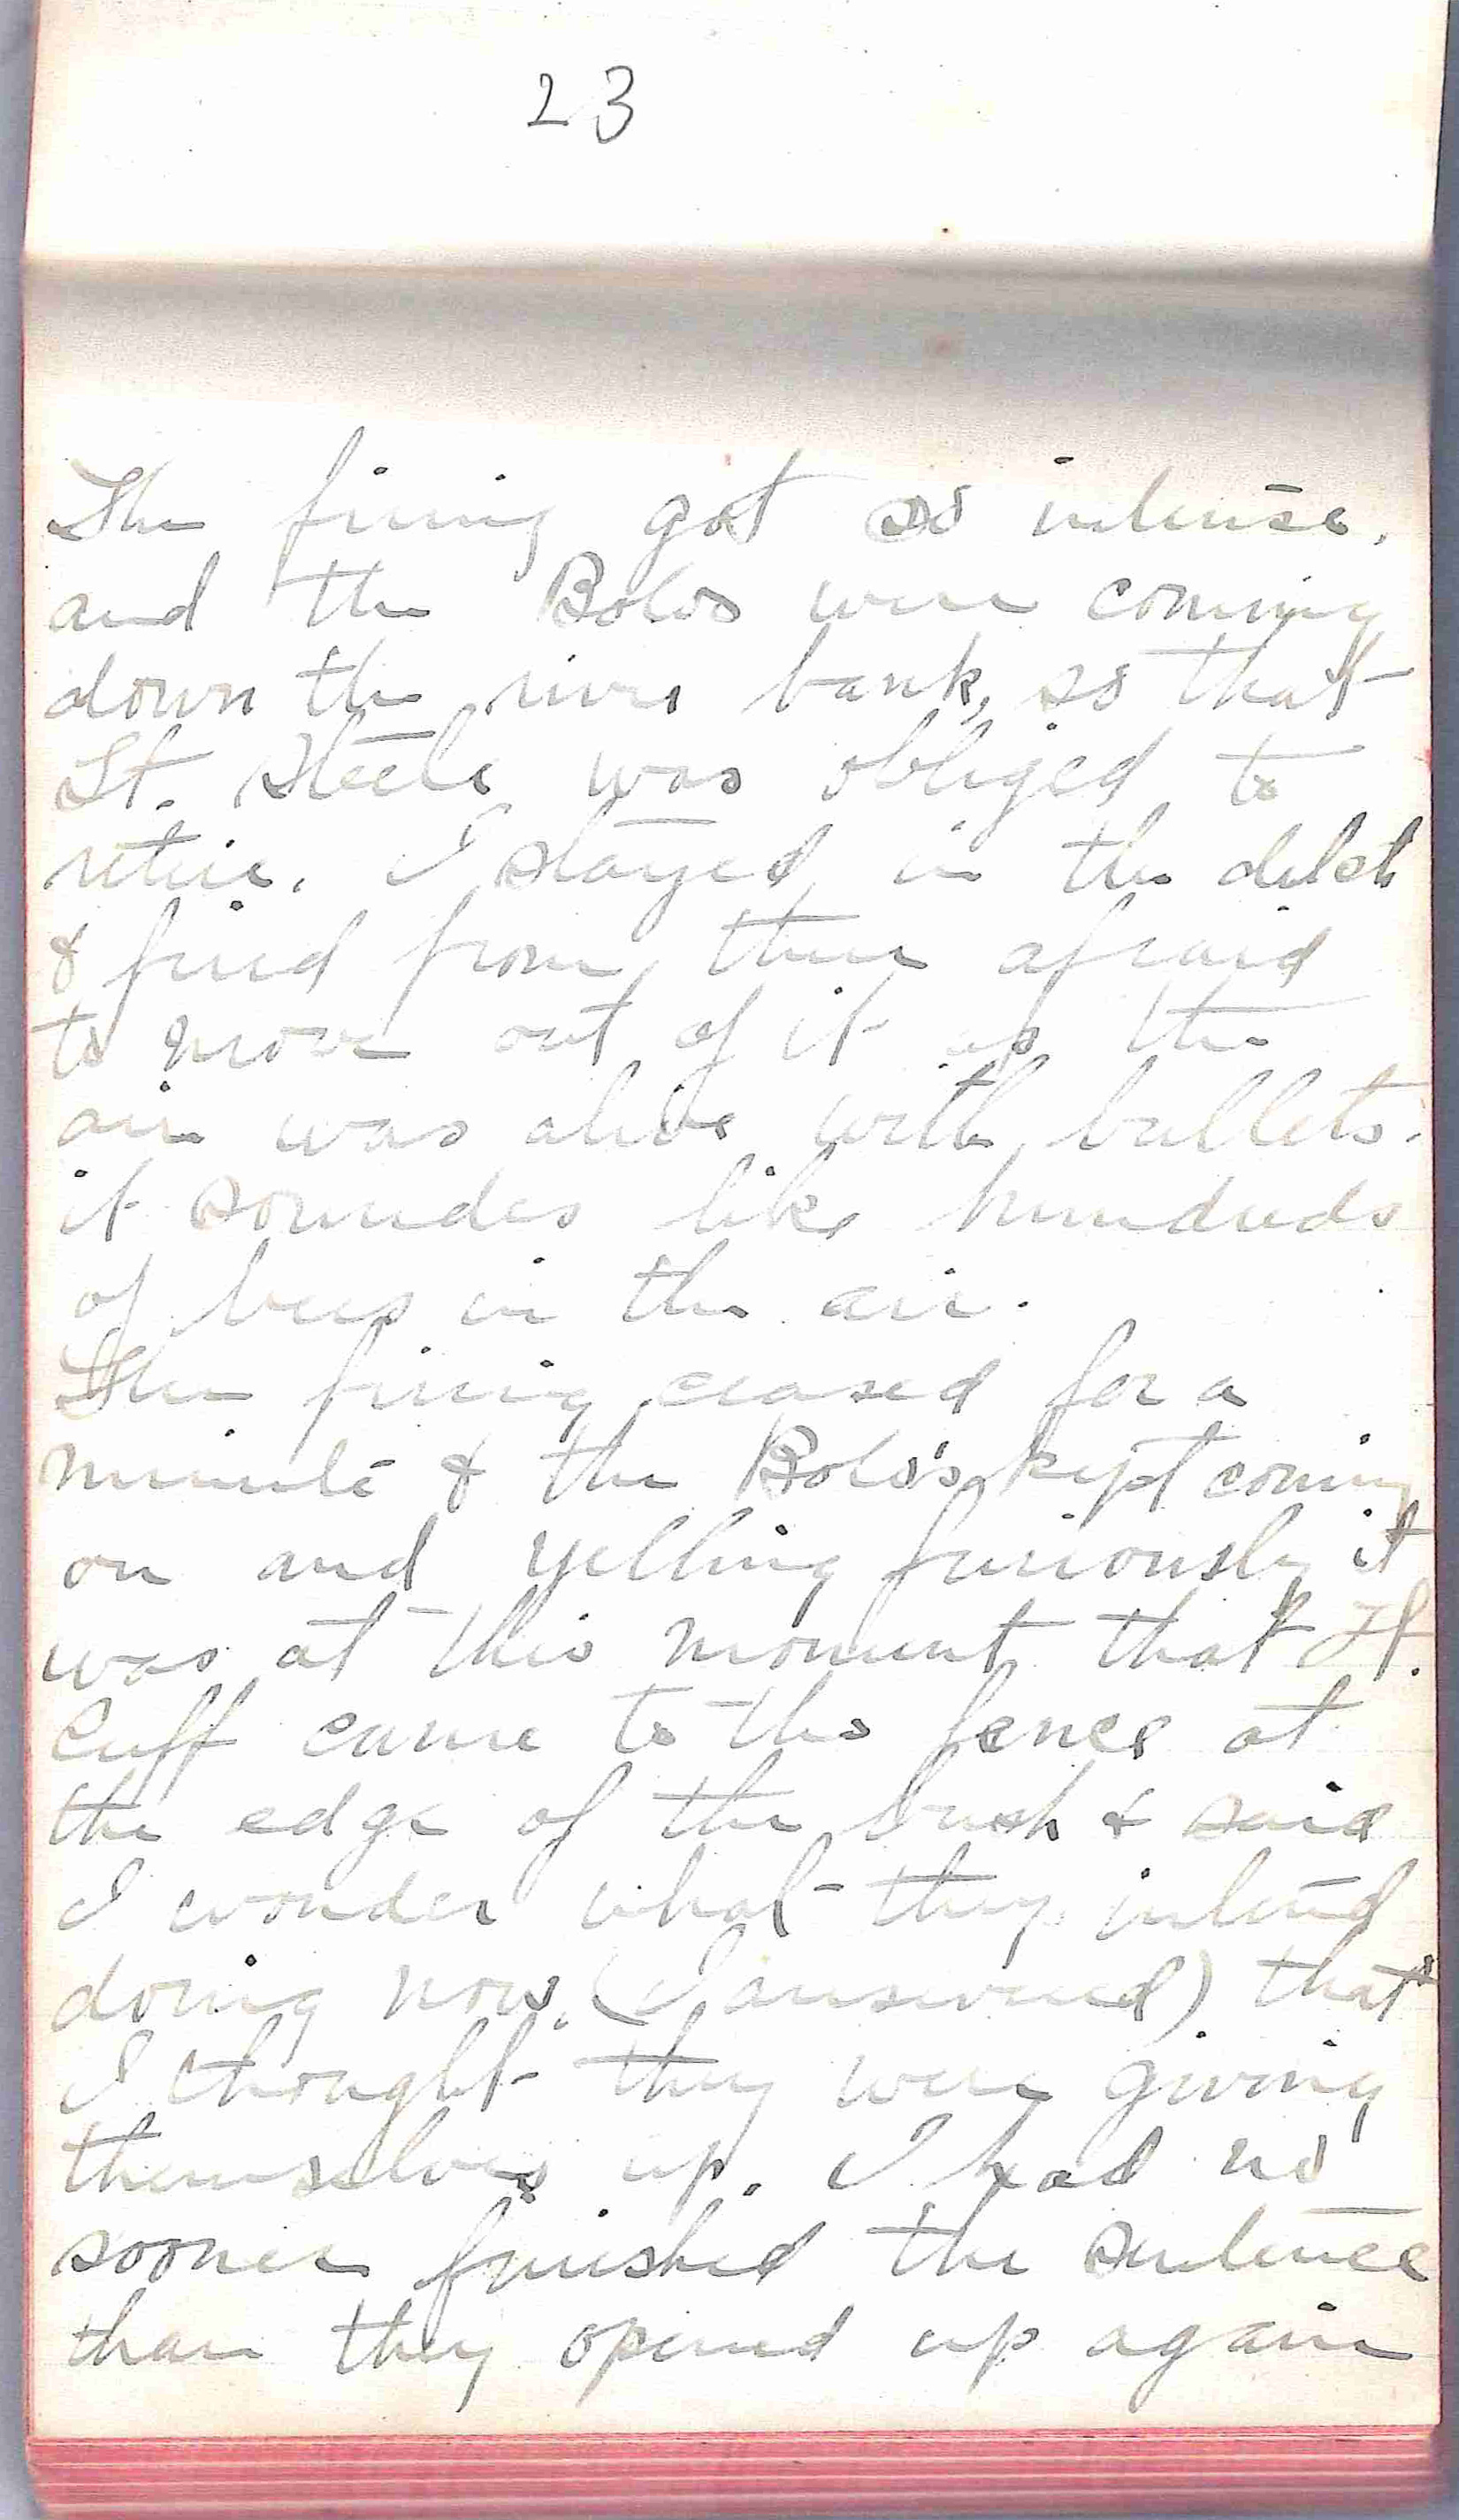 23
The firing got so intense,
and the Bolos were coming
down the river bank, so that
Lt. Steele was obliged to
retire. I stayed in the ditch
& fired from there afraid
to move out of it as the
air was alive with bullets.
it soundes like hundreds
of bees in the air.
The firing ceased for a
minute & the Bolo's kept coming
on and yelling furiously it
was at this moment that Lt.
Cuff came to the fence at
the edge of the bush & said
I wonder what they intend
doing now, (I answered) that
I thought they were giving
themselves up. I had no
sooner finished the sentence
than they opened up again